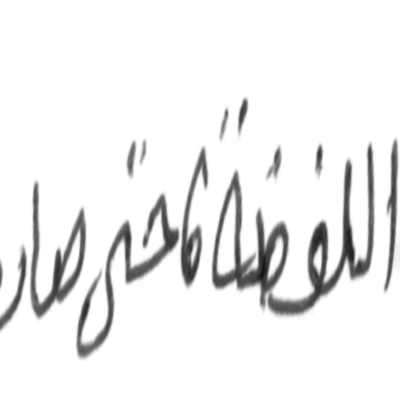 اللفضة، حتى صار